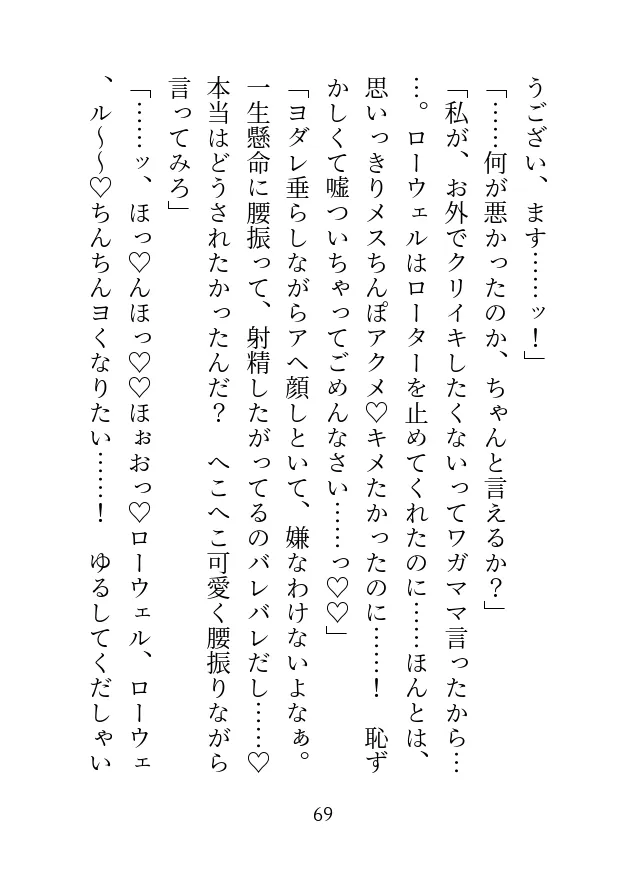 うござい、ます……ッ！」
「……何が悪かったのか、ちゃんと言えるか？」
「私が、お外でクリイキしたくないってワガママ言ったから…
…。ローウェルはローターを止めてくれたのに……ほんとは、
思いっきりメスちんぽアクメ♡キメたかったのに……！　恥ず
かしくて嘘ついちゃってごめんなさい……っ♡♡」
「ヨダレ垂らしながらアヘ顔しといて、嫌なわけないよなぁ。
一生懸命に腰振って、射精したがってるのバレバレだし……♡
本当はどうされたかったんだ？　へこへこ可愛く腰振りながら
言ってみろ」
「……ッ、ほっ♡んほっ♡♡ほぉおっ♡ローウェル、ローウェ
、ル～～♡ちんちんヨくなりたい……！　ゆるしてくだしゃい
69